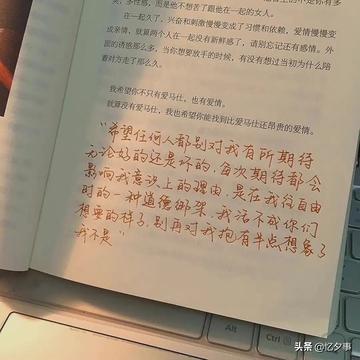 美，多性感，而是他不想苦了跟他在一起的女人。
在一起久了，兴奋和刺激慢慢变成了习惯和依赖，爱情慢慢变
成亲情，就算两个人在一起没有新鲜感了，请别忘记还有感情。外
面的诱惑那么多，当你想要放手的时候，有没有想过当初为什么陪
着对方走了那么久。
我希望你不只有爱马仕，也有爱情。
就算没有爱马仕，我也希望你能找到比爱马仕还昂贵的爱情。
“希望任何人都别对我有所期待
无论好的还是坏的，每次期待都会
影响我意识上的理由，是在我行自由
时的一种道德绑架，我活不成你们
想要的样子，别再对我抱有半点想象了
我不是”
Alt
Ctrl
头条 @忆夕事